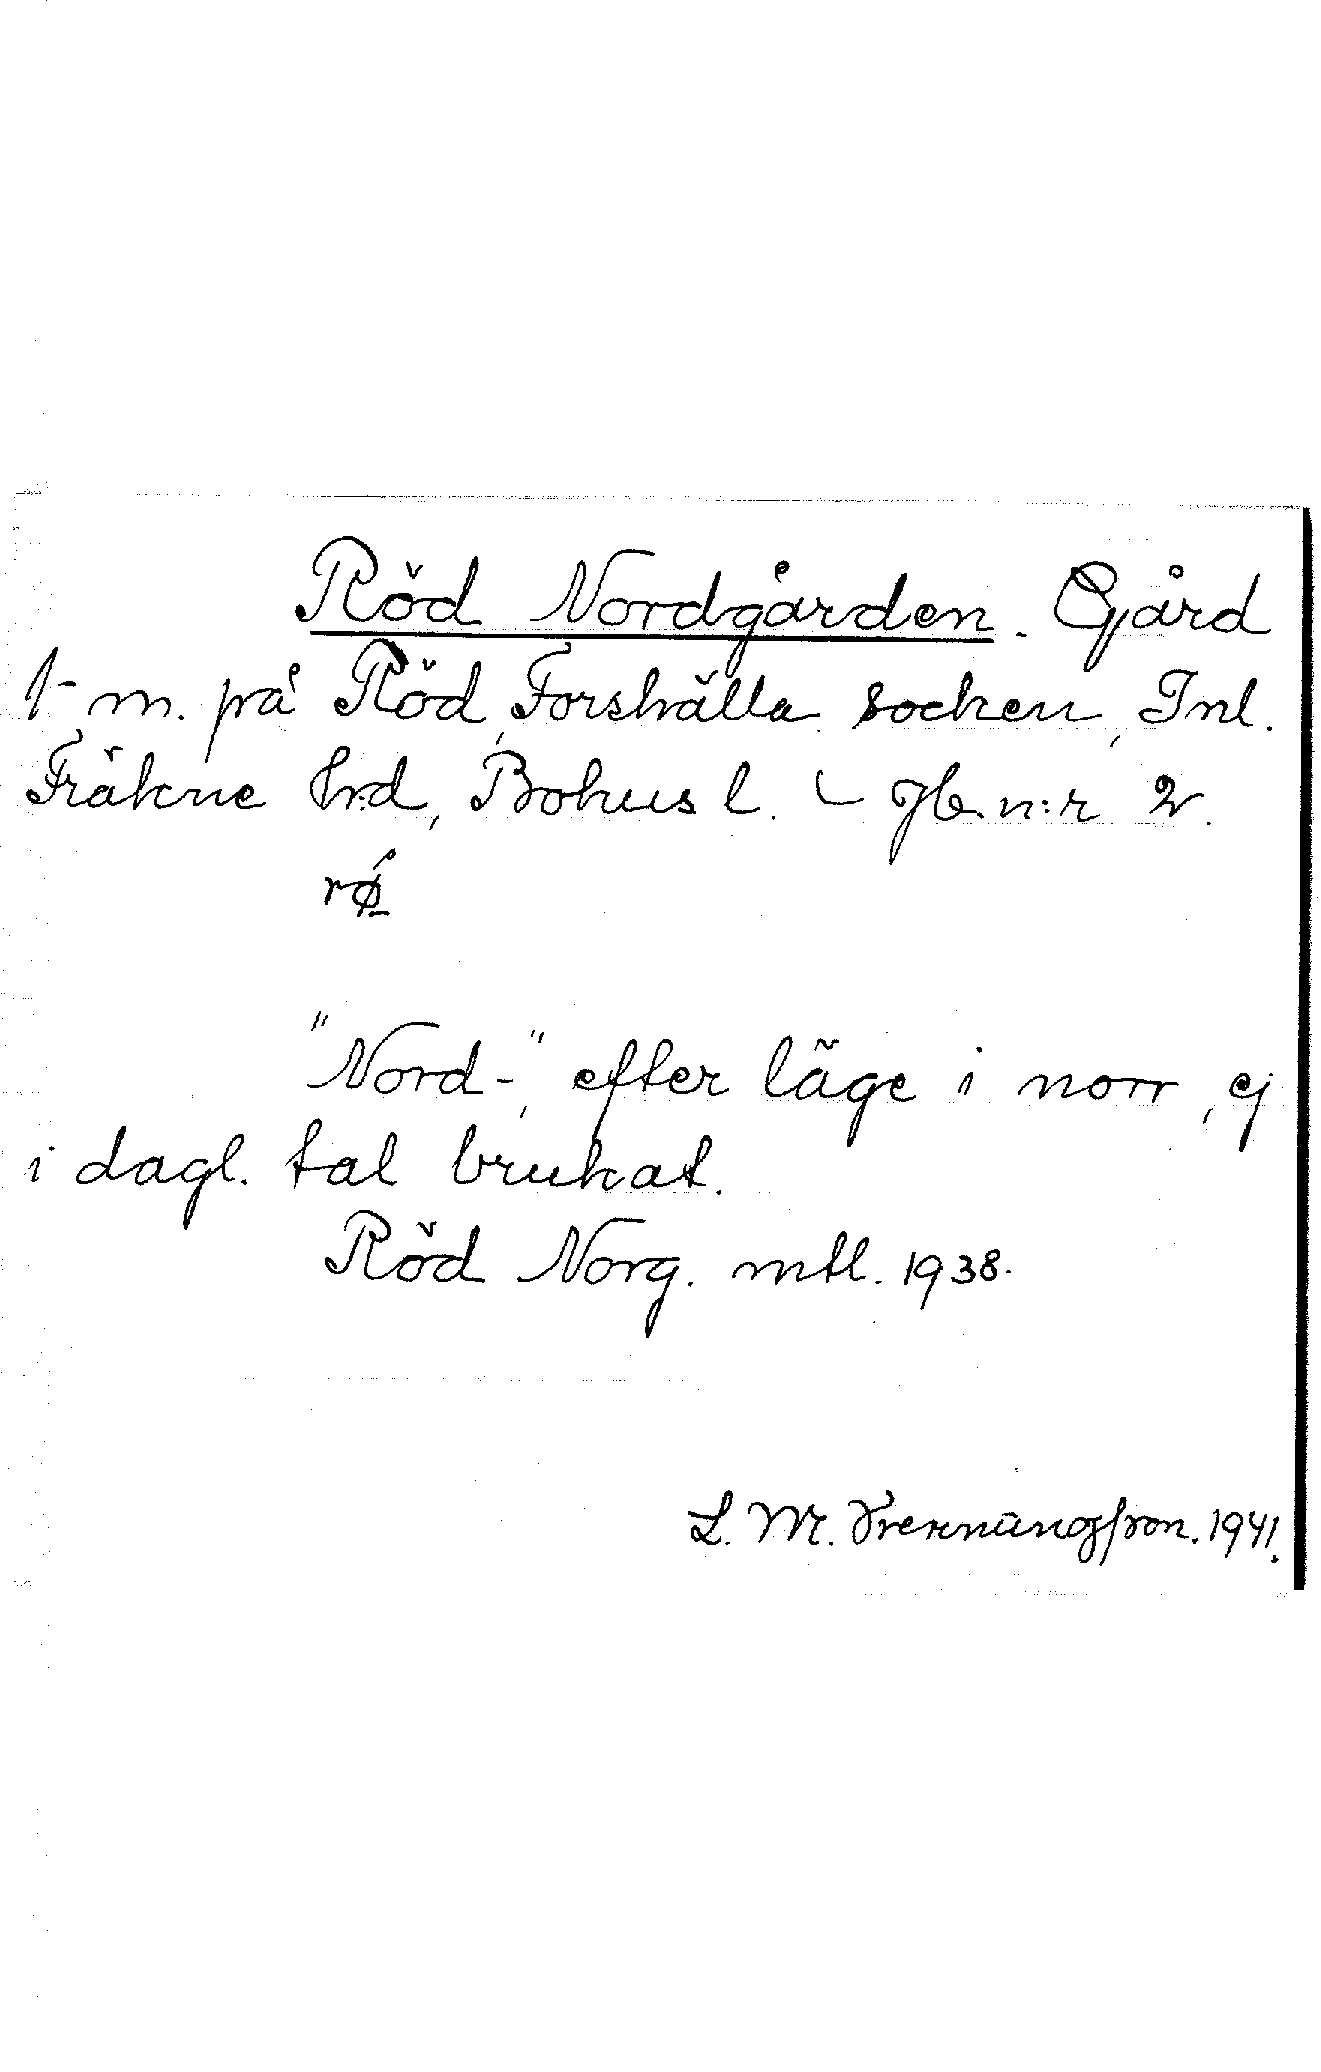 Röd Nordgården. Gård
1 m. på Röd, Forshälla socken, Inl.
Fräkne hrd, Bohus l. – Jb. n:r 2.
rǿ̱
"Nord-", efter läge i norr, ej
i dagl. tal brukat.
Röd Norg. mtl. 1938.
L. M. 1941.